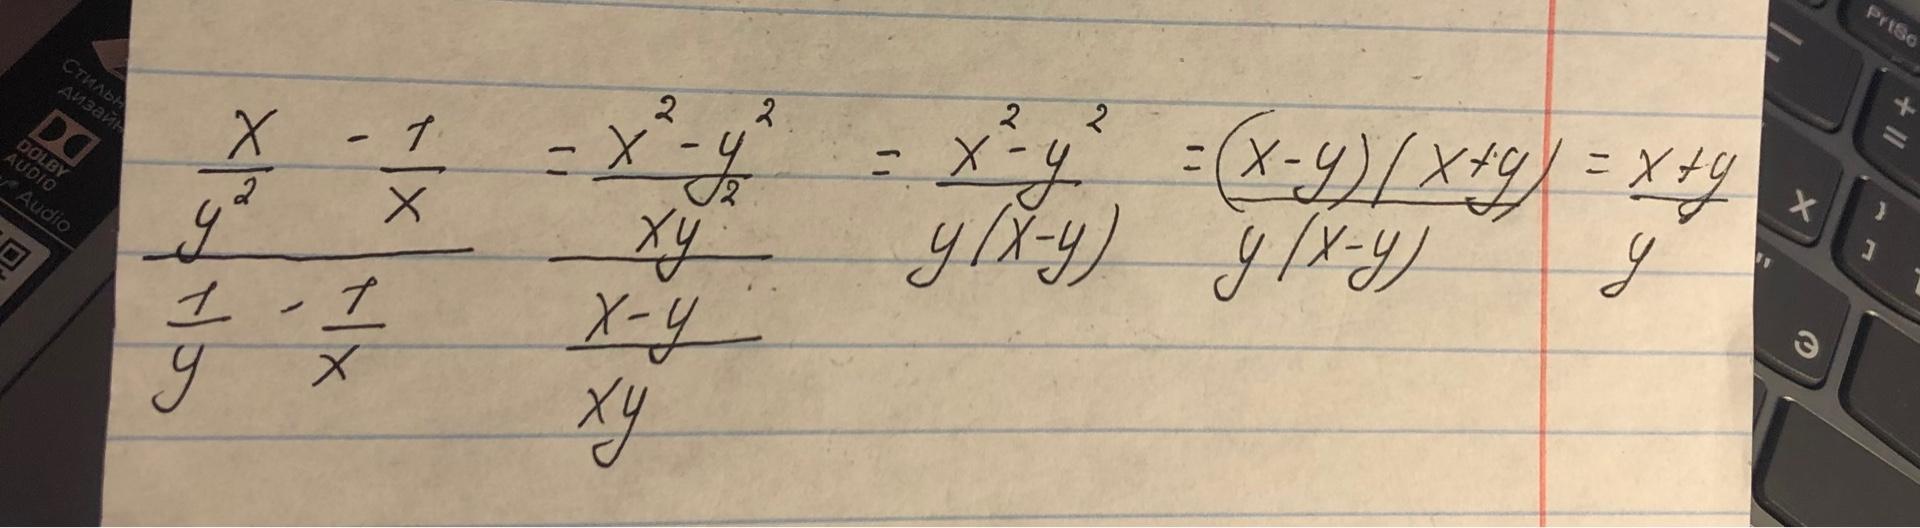 x/y² - 1/x / 1/y - 1/x = x²-y²/xy² / x-y/xy = x²-y²/y(x-y) = (x-y)(x+y)/y(x-y) = x+y/y
DOLBY
AUDIO
Audio
PrtSc
+
=
X
}
]
"
Э